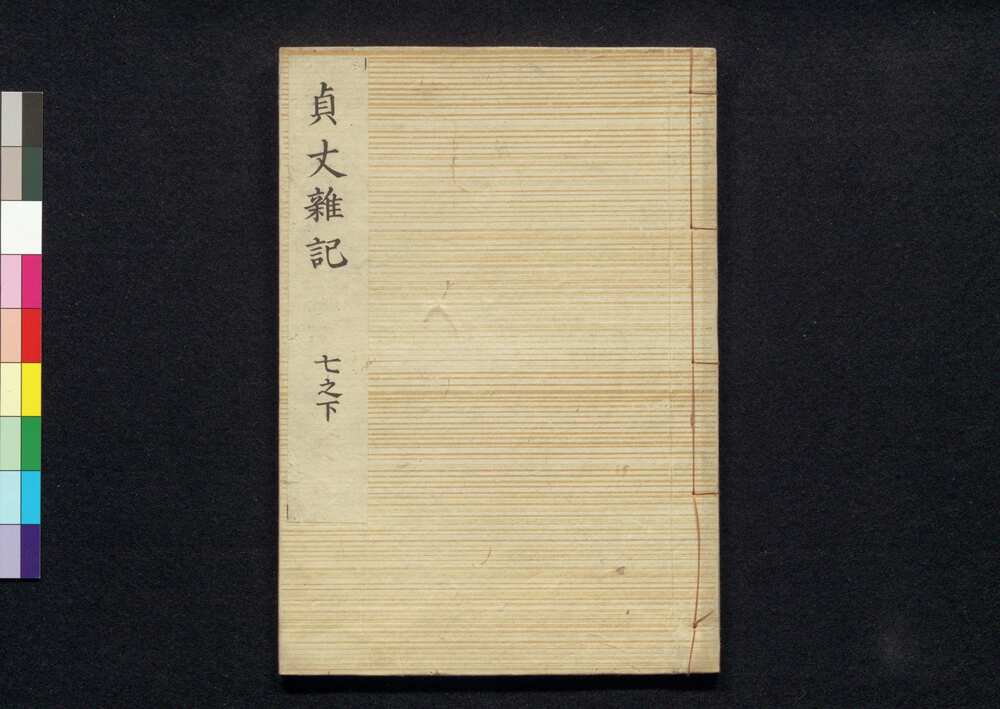 貞丈雜記
七之下